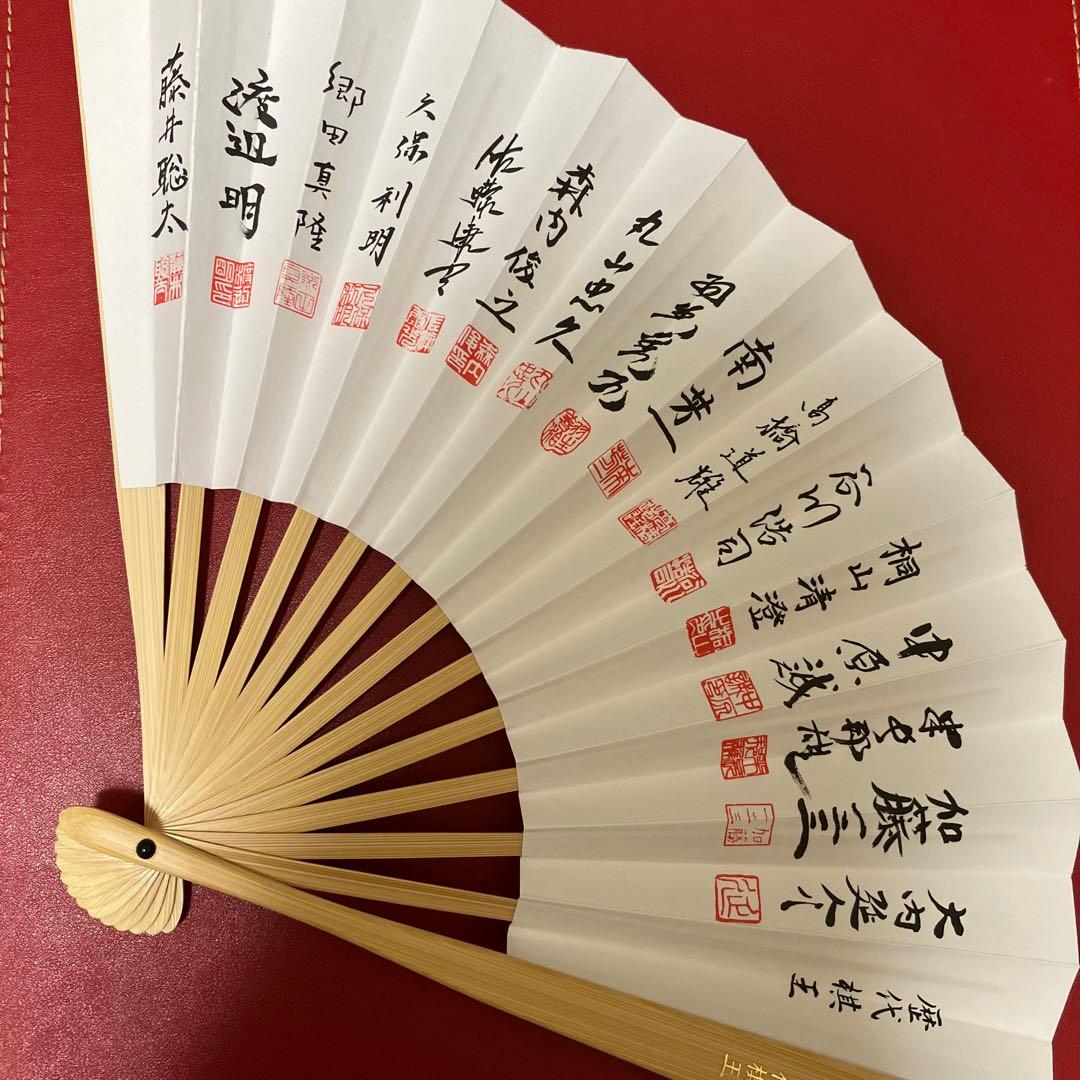 歴代棋王
大内延介
加藤一二三
米長邦雄
中原誠
桐山清澄
谷川浩司
高橋道雄
南芳一
羽生善治
丸山忠久
森内俊之
佐藤康光
久保利明
郷田真隆
渡辺明
藤井聡太
棋王